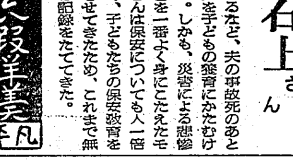 石上さん
るなど、夫の事故死のあと
を子どもの養育にかたむけ
。しかも、災害による悲惨
を一番よく身にこたえたモ
んは保安についても人一倍
、子どもたちの保安教育を
せてきたため、これまで無
記録をたててきた。
平凡